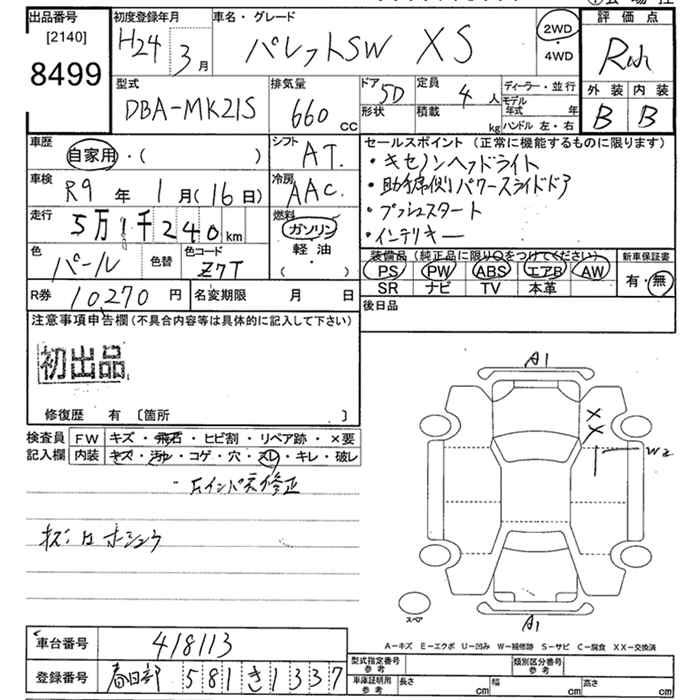 出品番号
[2140]
8499
初度登録年月
H24 3月
車名・グレード
パレットSW XS
2WD
・
4WD
評価点
外装 内装
B B
型式
DBA-MK21S
排気量
660 CC
ドア 5D
形状
定員 4 人
積載 kg
ディーラー・並行
モデル年式 年
ハンドル 左・右
車歴
自家用・( )
シフト
AT.
車検
R9年1月(16日)
冷房
AAC.
走行
5万1千240km
燃料
ガソリン
・
軽油
( )
色
パール
色替
色コード
Z7T
R券 10270円
名変期限 月 日
セールスポイント (正常に機能するものに限ります)
・キセノンヘッドライト
・助手席側パワースライドドア
・プッシュスタート
・インテリキー
装備品(純正品に限り○をつけてください)
PS PW ABS エアB AW
SR ナビ TV 本革
新車保証書
有・無
後日品
注意事項申告欄(不具合内容等は具体的に記入して下さい)
初出品
修復歴 有 〔箇所 〕
検査員記入欄
FW キズ・飛石・ヒビ割・リペア跡・×要
内装 キズ・汚れ・コゲ・穴・スレ・キレ・破レ
A1
W2
A1
スペア
A－キズ E－エクボ U－凹み W－補修跡 S－サビ C－腐食 XX－交換済
車台番号 418113
登録番号 春日部 581 き 1337
型式指定番号 参考
類別区分番号 参考
車庫証明用 参考 長さ cm 幅 cm 高さ cm